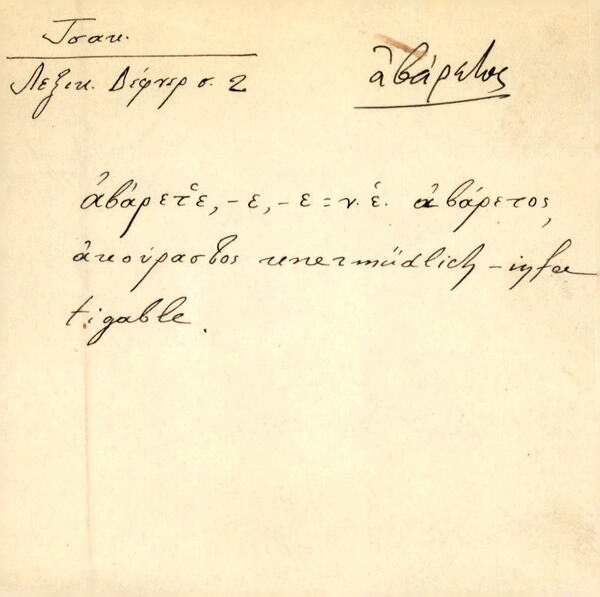 Τσακ.
Λεξικ. Δέφνερ σ. 2
ἀβάρετος
ἀβάρετε, -ε, -ε = ν.ἑ. ἀβάρετος,
ἀκούραστος unermüdlich - infa
tigable.